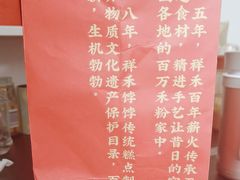 五年，祥禾百年薪火传承
食材，精进手艺让昔日的宫
各地的百万禾粉家中。
八年，祥禾饽饽传统糕点制
物质文化遗产保护目录，百
，生机勃勃。